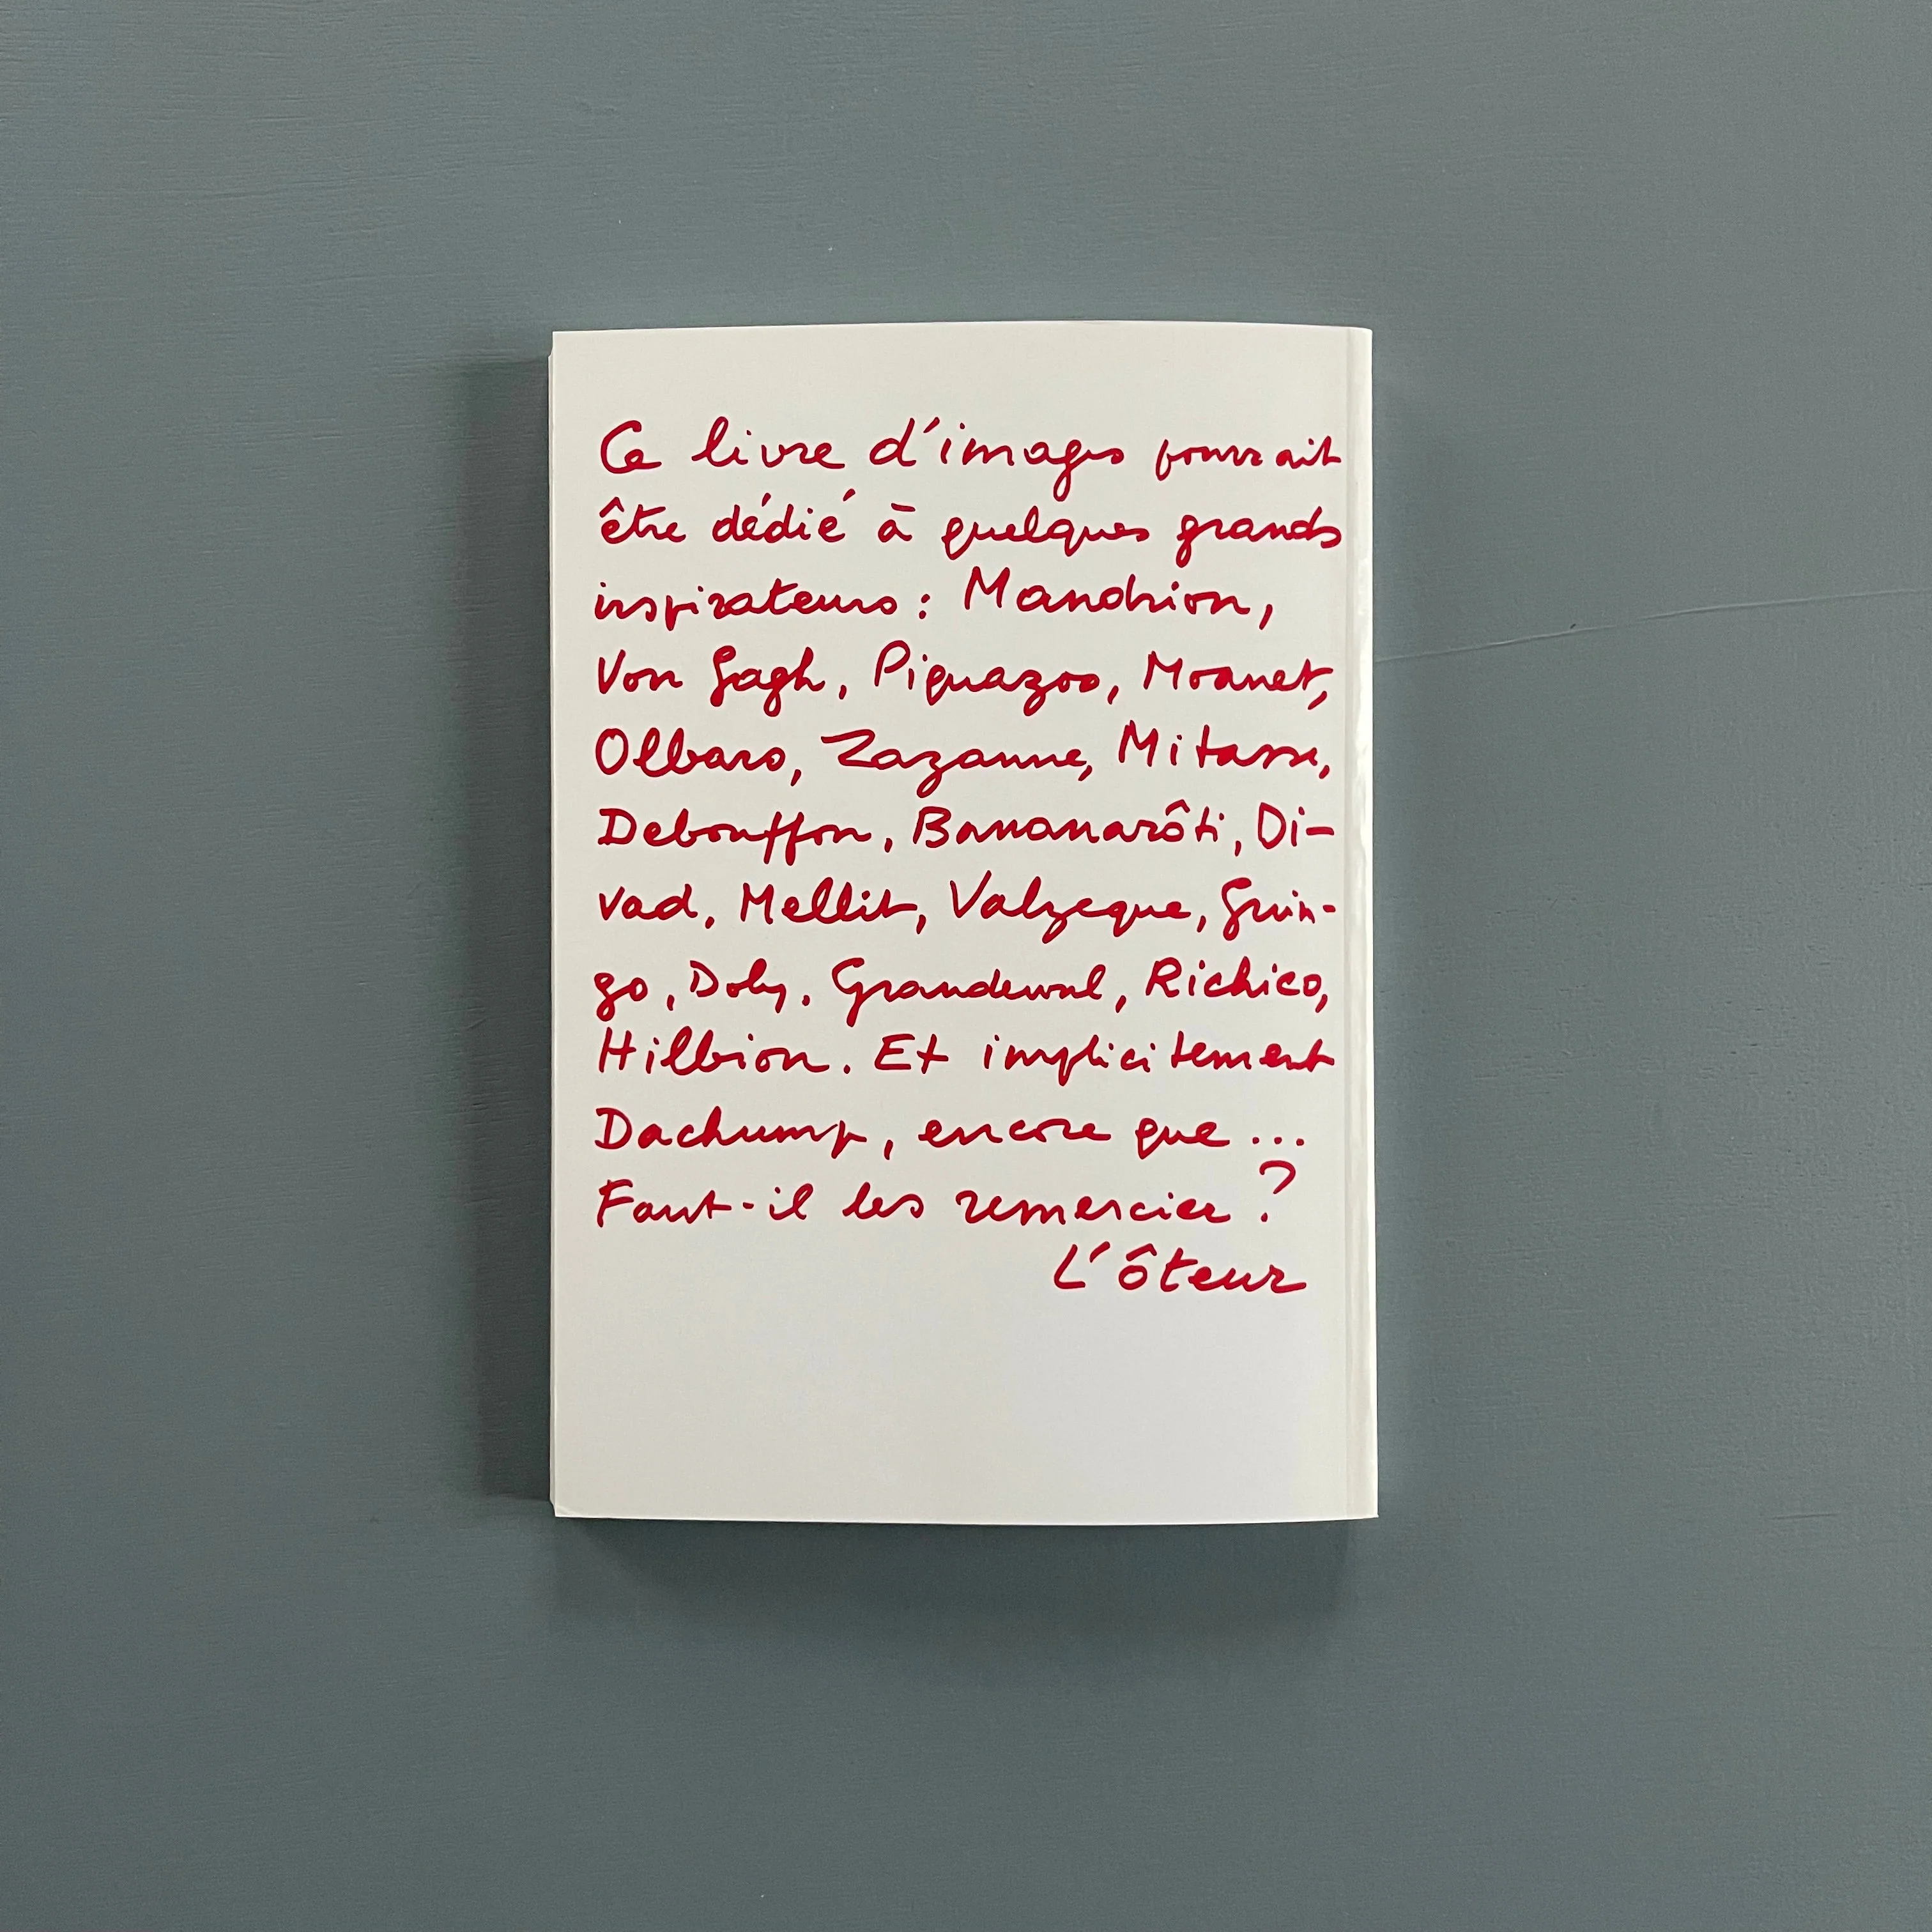 Ce livre d'images pourrait
être dédié à quelques grands
inspirateurs : Mandrion,
Von Gagh, Piquazoo, Moanet,
Olbaro, Zazanne, Mitasse,
Debouffon, Bananarôti, Di-
vad, Mellit, Valzeque, Guin-
go, Doly, Grandewal, Richico,
Hilbion. Et implicitement
Dachump, encore que ...
Faut-il les remercier ?
L'ôteur